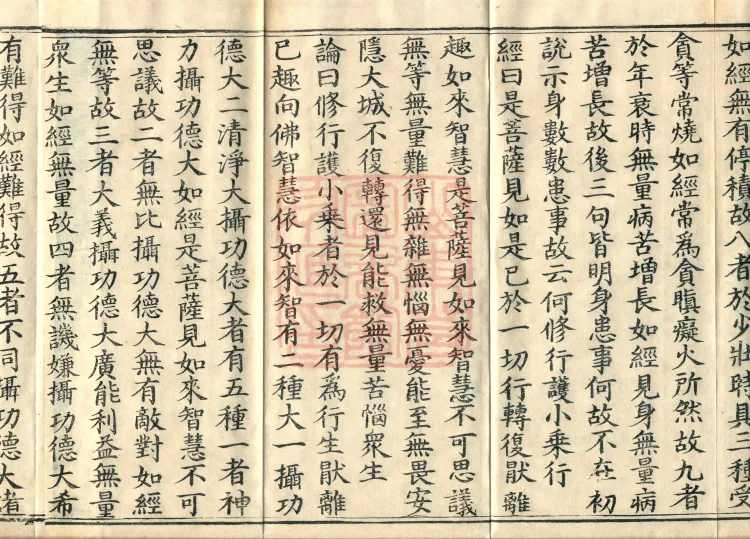 如經無有停積故八者於少壯時具三種受
貪等常燒如經常為貪瞋癡火所然故九者
於年衰時無量病苦增長如經見身無量病
苦增長故後三句皆明身患事何故不在初
說示身數數患事故云何修行護小乘行
經曰是菩薩見如是已於一切行轉復猒離
趣如來智慧是菩薩見如來智慧不可思議
無等無量難得無雜無惱無憂能至無畏安
隱大城不復轉還見能救無量苦惱衆生
論曰修行護小乘者於一切有為行生猒離
已趣向佛智慧依如來智有二種大一攝功
德大二清淨大攝功德大者有五種一者神
力攝功德大如經是菩薩見如來智慧不可
思議故二者無比攝功德大無有敵對如經
無等故三者大義攝功德大廣能利益無量
衆生如經無量故四者無譏嫌攝功德大希
有難得如經難得故五者不同攝功德大者